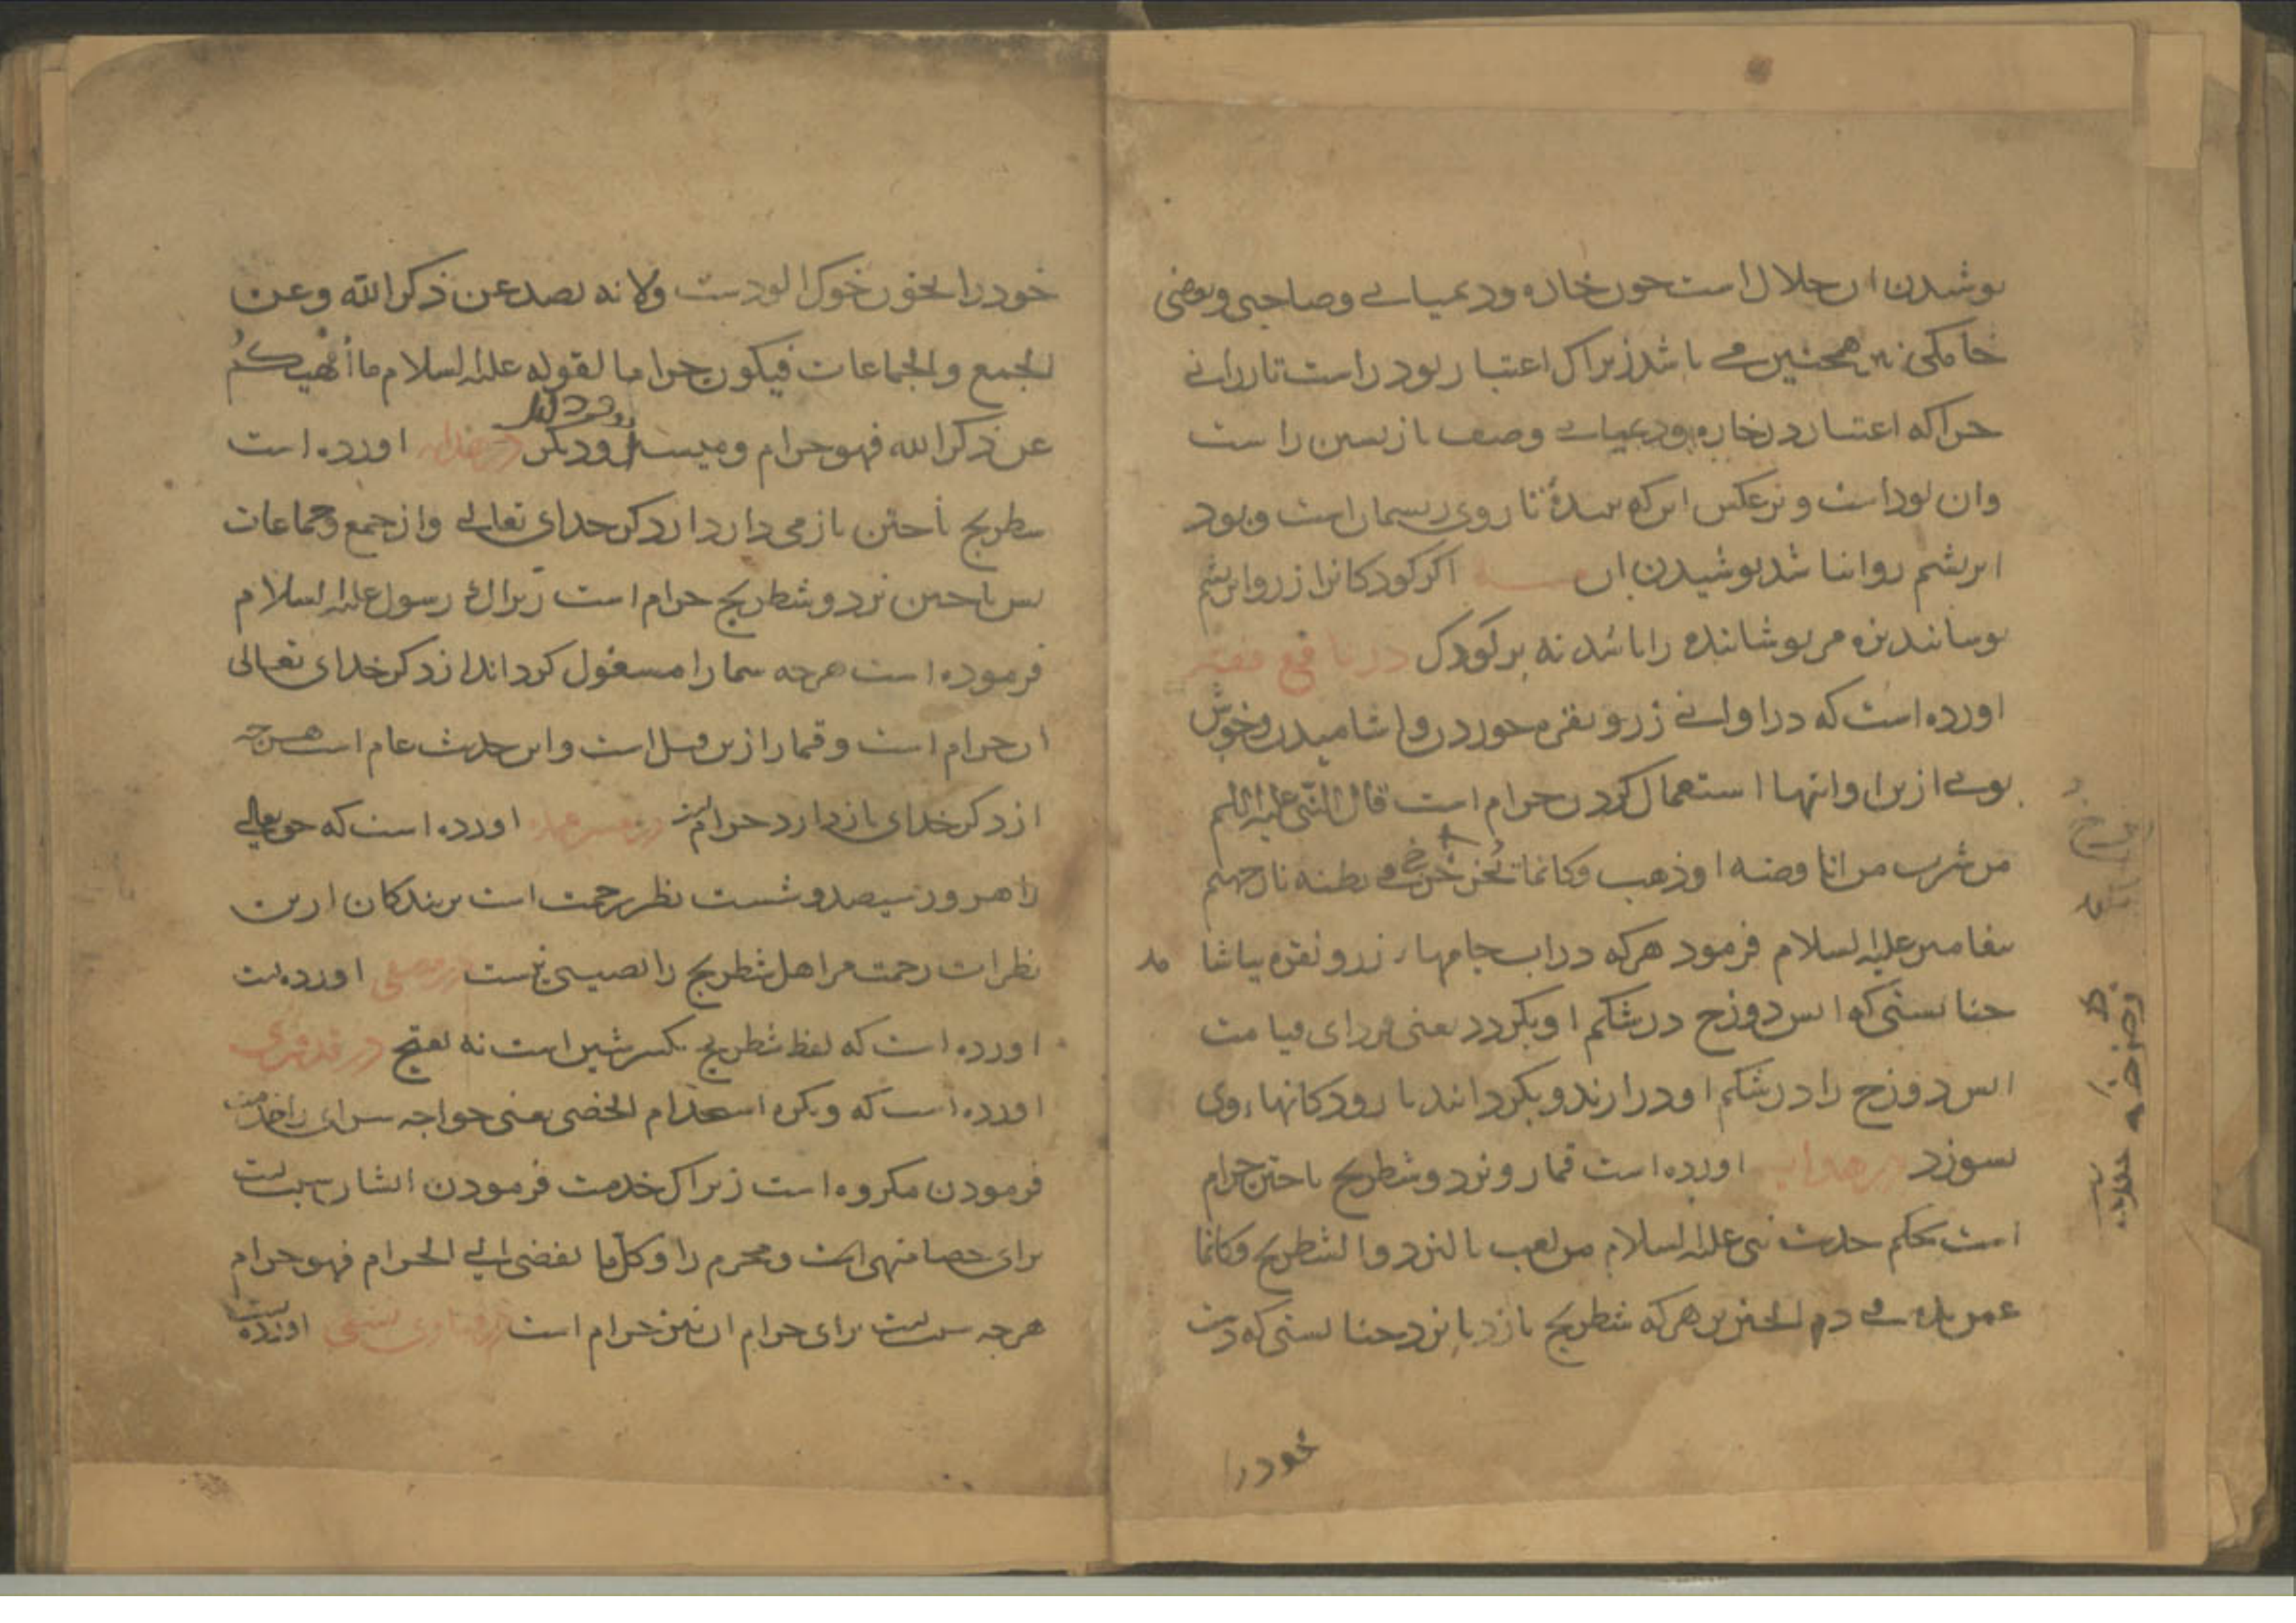 پوشیدن آن حلال است چون خاره و دعیبا و صاحبی و بعضی
خامکی نیز همچنین می باشد زیراک اعتبار پود راست تار رانی
چراکه اعتبار در خاره و وصف بازپسین راست
وان پود است و برعکس این که تار وی ریسمان است و پود
ابریشم روا نباشد پوشیدن آن مسئله اگر کودکانرا از زر و ابریشم
پوشانند بزه مر پوشاننده را باشد نه بر کودک در نافع
اورده است که در اوانی زر و نقره خوردن و اشامیدن و خوش
بوی از بن اوانیها استعمال کردن حرام است قال النبی علیه السلم
من شرب من انا فضه او ذهب فکانما فی بطنه نار جهنم
پیغامبر علیه السلام فرمود هرکه در اب جامهاء زر و نقره بیاشا مد
چنانستی که اتش دوزخ در شکم او بکردد یعنی فردای قیامت
اتش دوزخ را در شکم او درارند و بکردانند تا رودکانهاء وی
بسوزد در هدایه اورده است قمار و نرد و شطرنج باختن حرام
است بحکم حدیث نبی علیه السلام من لعب بالنرد والشطرنج فکانما
غمس یده فی دم الخنزیر هرکه شطرنج بازد یا نرد چنانستی که دست
خود را
خود را بخون خوک الودست ولانه یصد عن ذکر الله وعن
الجمع والجماعات فیکون حراما لقوله علیه السلام ما ألهیکم
عن ذکر الله فهو حرام ومیسر ودیکر در هدایه اورده است
شطرنج باختن باز می دارد از ذکر خدای تعالی واز جمع وجماعات
پس باختن نرد و شطرنج حرام است زیراک رسول علیه السلام
فرموده است هرچه شما را مشغول کرداند از ذکر خدای تعالی
ان حرام است و قمار ازین قبیل است و این حدیث عام است هرچه
از ذکر خدای باز دارد حرام است در تفسیر اورده است که حق تعالی
را هر روز سیصد و شست نظر رحمت است بر بندکان ازین
نظرات رحمت مر اهل شطرنج را نصیبی نیست در اورده است
اورده است که لفظ شطرنج بکسر شین است نه بفتح در قدوری
اورده است که ویکره استخدام الخصی یعنی خواجه سرای را خدمت
فرمودن مکروه است زیراک خدمت فرمودن ایشان سبب است
برای خصا منهی است و محرم را وکل ما یفضی الی الحرام فهو حرام
هرچه سبب است برای حرام ان نیز حرام است در فتاوی نسفی اورده است